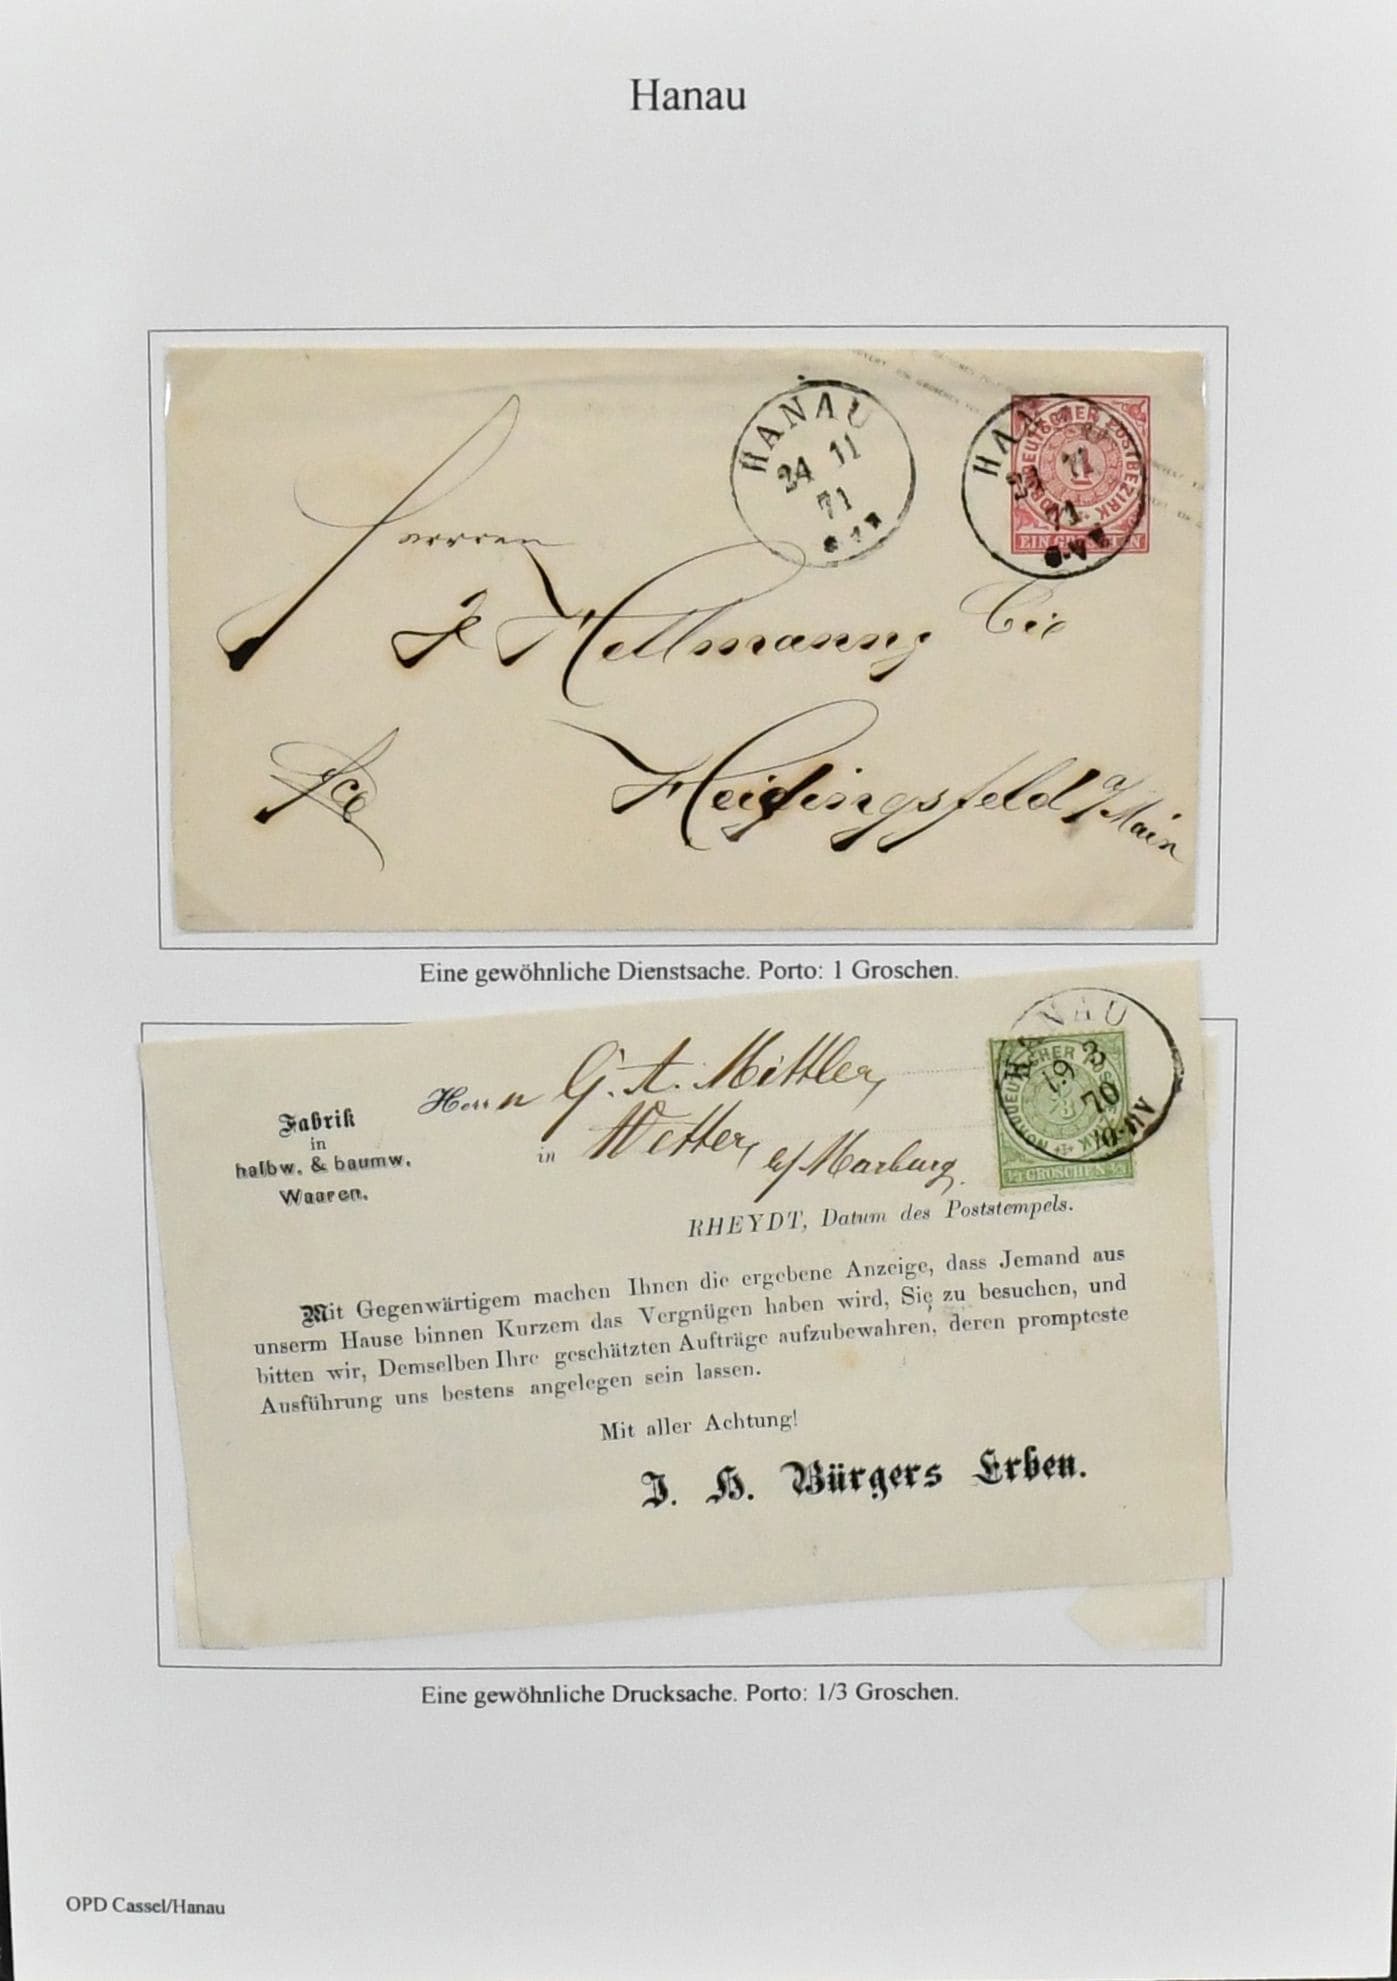 Hanau
HANAU
24 11
71
HANAU
NORDDEUTSCHER POSTBEZIRK
1
EIN GROSCHEN
Herren
Hellmann & Cie
Heidingsfeld a/Main
Eine gewöhnliche Dienstsache. Porto: 1 Groschen.
HANAU
19 3
70
NORDDEUTSCHER POSTBEZIRK
1/3 GROSCHEN 1/3
Herrn G. A. Mittler,
in Wetter, b/ Marburg.
Fabrik
in
halbw. & baumw.
Waaren.
RHEYDT, Datum des Poststempels.
Mit Gegenwärtigem machen Ihnen die ergebene Anzeige, dass Jemand aus
unserm Hause binnen Kurzem das Vergnügen haben wird, Sie zu besuchen, und
bitten wir, Demselben Ihre geschätzten Aufträge aufzubewahren, deren prompteste
Ausführung uns bestens angelegen sein lassen.
Mit aller Achtung!
J. H. Bürgers Erben.
Eine gewöhnliche Drucksache. Porto: 1/3 Groschen.
OPD Cassel/Hanau